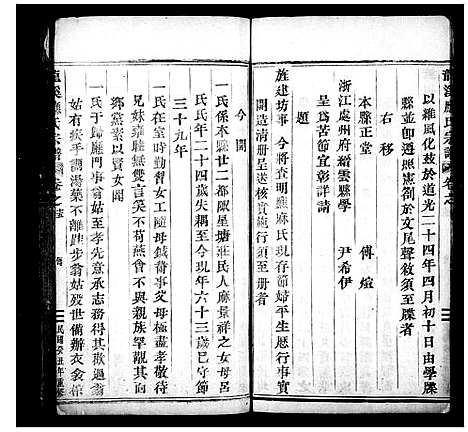 龍溪應氏宗譜 卷之
以維風化茲於道光二十四年四月初十日由學牒
縣並即遵照憲劄於文尾聲敘須至牒者
右移
本縣正堂 傅 煊
浙江處州府縉雲縣學 尹希伊
呈為節苦宜彰詳請
題
旌建坊事今將查明應麻氏現存節婦平生歷行事實
開造清冊呈送核實施行須至冊者
今開
一氏係本縣廿二都陳呈塘莊民人麻景祥之女母呂
氏氏年二十四歲失耦至今現年六十三歲已守節
三十九年
一氏在室時勤習女工隨母鍼黹事父母極盡孝敬待
兄妹雍睦無雙言笑不苟燕會不與親族罕覯其面
鄉黨素以賢女聞
一氏于歸應門事翁姑至孝先意承志務得其歡遇翁
姑有疾手調湯藥不離跬步翁姑歿世備辦衣衾棺
龍溪應氏宗譜 卷之
民國癸丑年重修